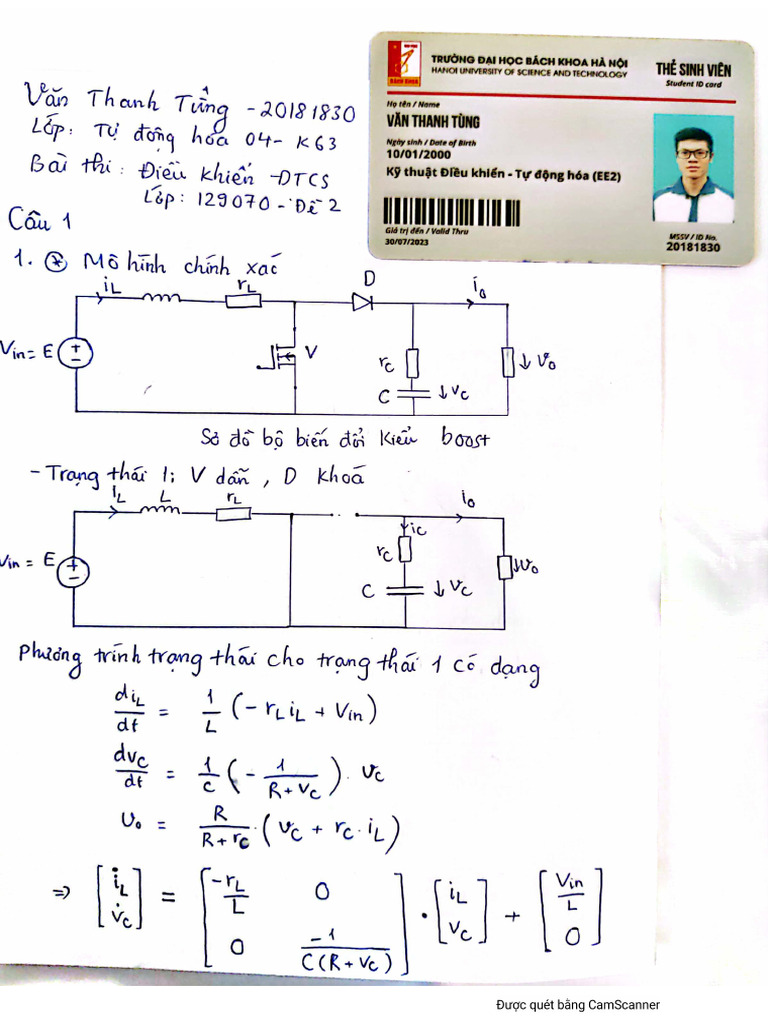 Văn Thanh Tùng - 20181830
Lớp: Tự động hóa 04 - K63
Bài thi: Điều khiển - ĐTCS
Lớp: 129070 - Đề 2
TRƯỜNG ĐẠI HỌC BÁCH KHOA HÀ NỘI
HANOI UNIVERSITY OF SCIENCE AND TECHNOLOGY
THẺ SINH VIÊN
Student ID card
Họ tên / Name
VĂN THANH TÙNG
Ngày sinh / Date of Birth
10/01/2000
Kỹ thuật Điều khiển - Tự động hóa (EE2)
Giá trị đến / Valid Thru
30/07/2023
MSSV / ID No.
20181830
BÁCH KHOA
Câu 1
1. * Mô hình chính xác
iL rL D i0
Vin = E V rC v0
C vC
Sơ đồ bộ biến đổi kiểu boost
- Trạng thái 1: V dẫn, D khoá
iL L rL i0
iC
Vin = E rC v0
C vC
Phương trình trạng thái cho trạng thái 1 có dạng
diL/dt = 1/L (-rL iL + Vin)
dvC/dt = 1/C (- 1/(R + vC)) . vC
v0 = R/(R + rC) . (vC + rC . iL)
=> [i̇L; v̇C] = [-rL/L 0; 0 -1/(C(R + vC))] . [iL; vC] + [Vin/L; 0]
Được quét bằng CamScanner